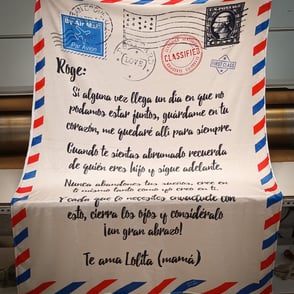 By Air Mail
Par Avion
U.S. POSTAGE
CLASSIFIED
FIRST CLASS
Roge:
Si alguna vez llega un día en que no
podamos estar juntos, guárdame en tu
corazón, me quedaré allí para siempre.
Cuando te sientas abrumado recuerda
de quién eres hijo y sigue adelante.
Nunca abandones tus sueños, cree en
ti mismo tanto como yo creo en ti.
Y cada que lo necesites envuélvete con
esto, cierra los ojos y considéralo
¡un gran abrazo!
Te ama Lolita (mamá)